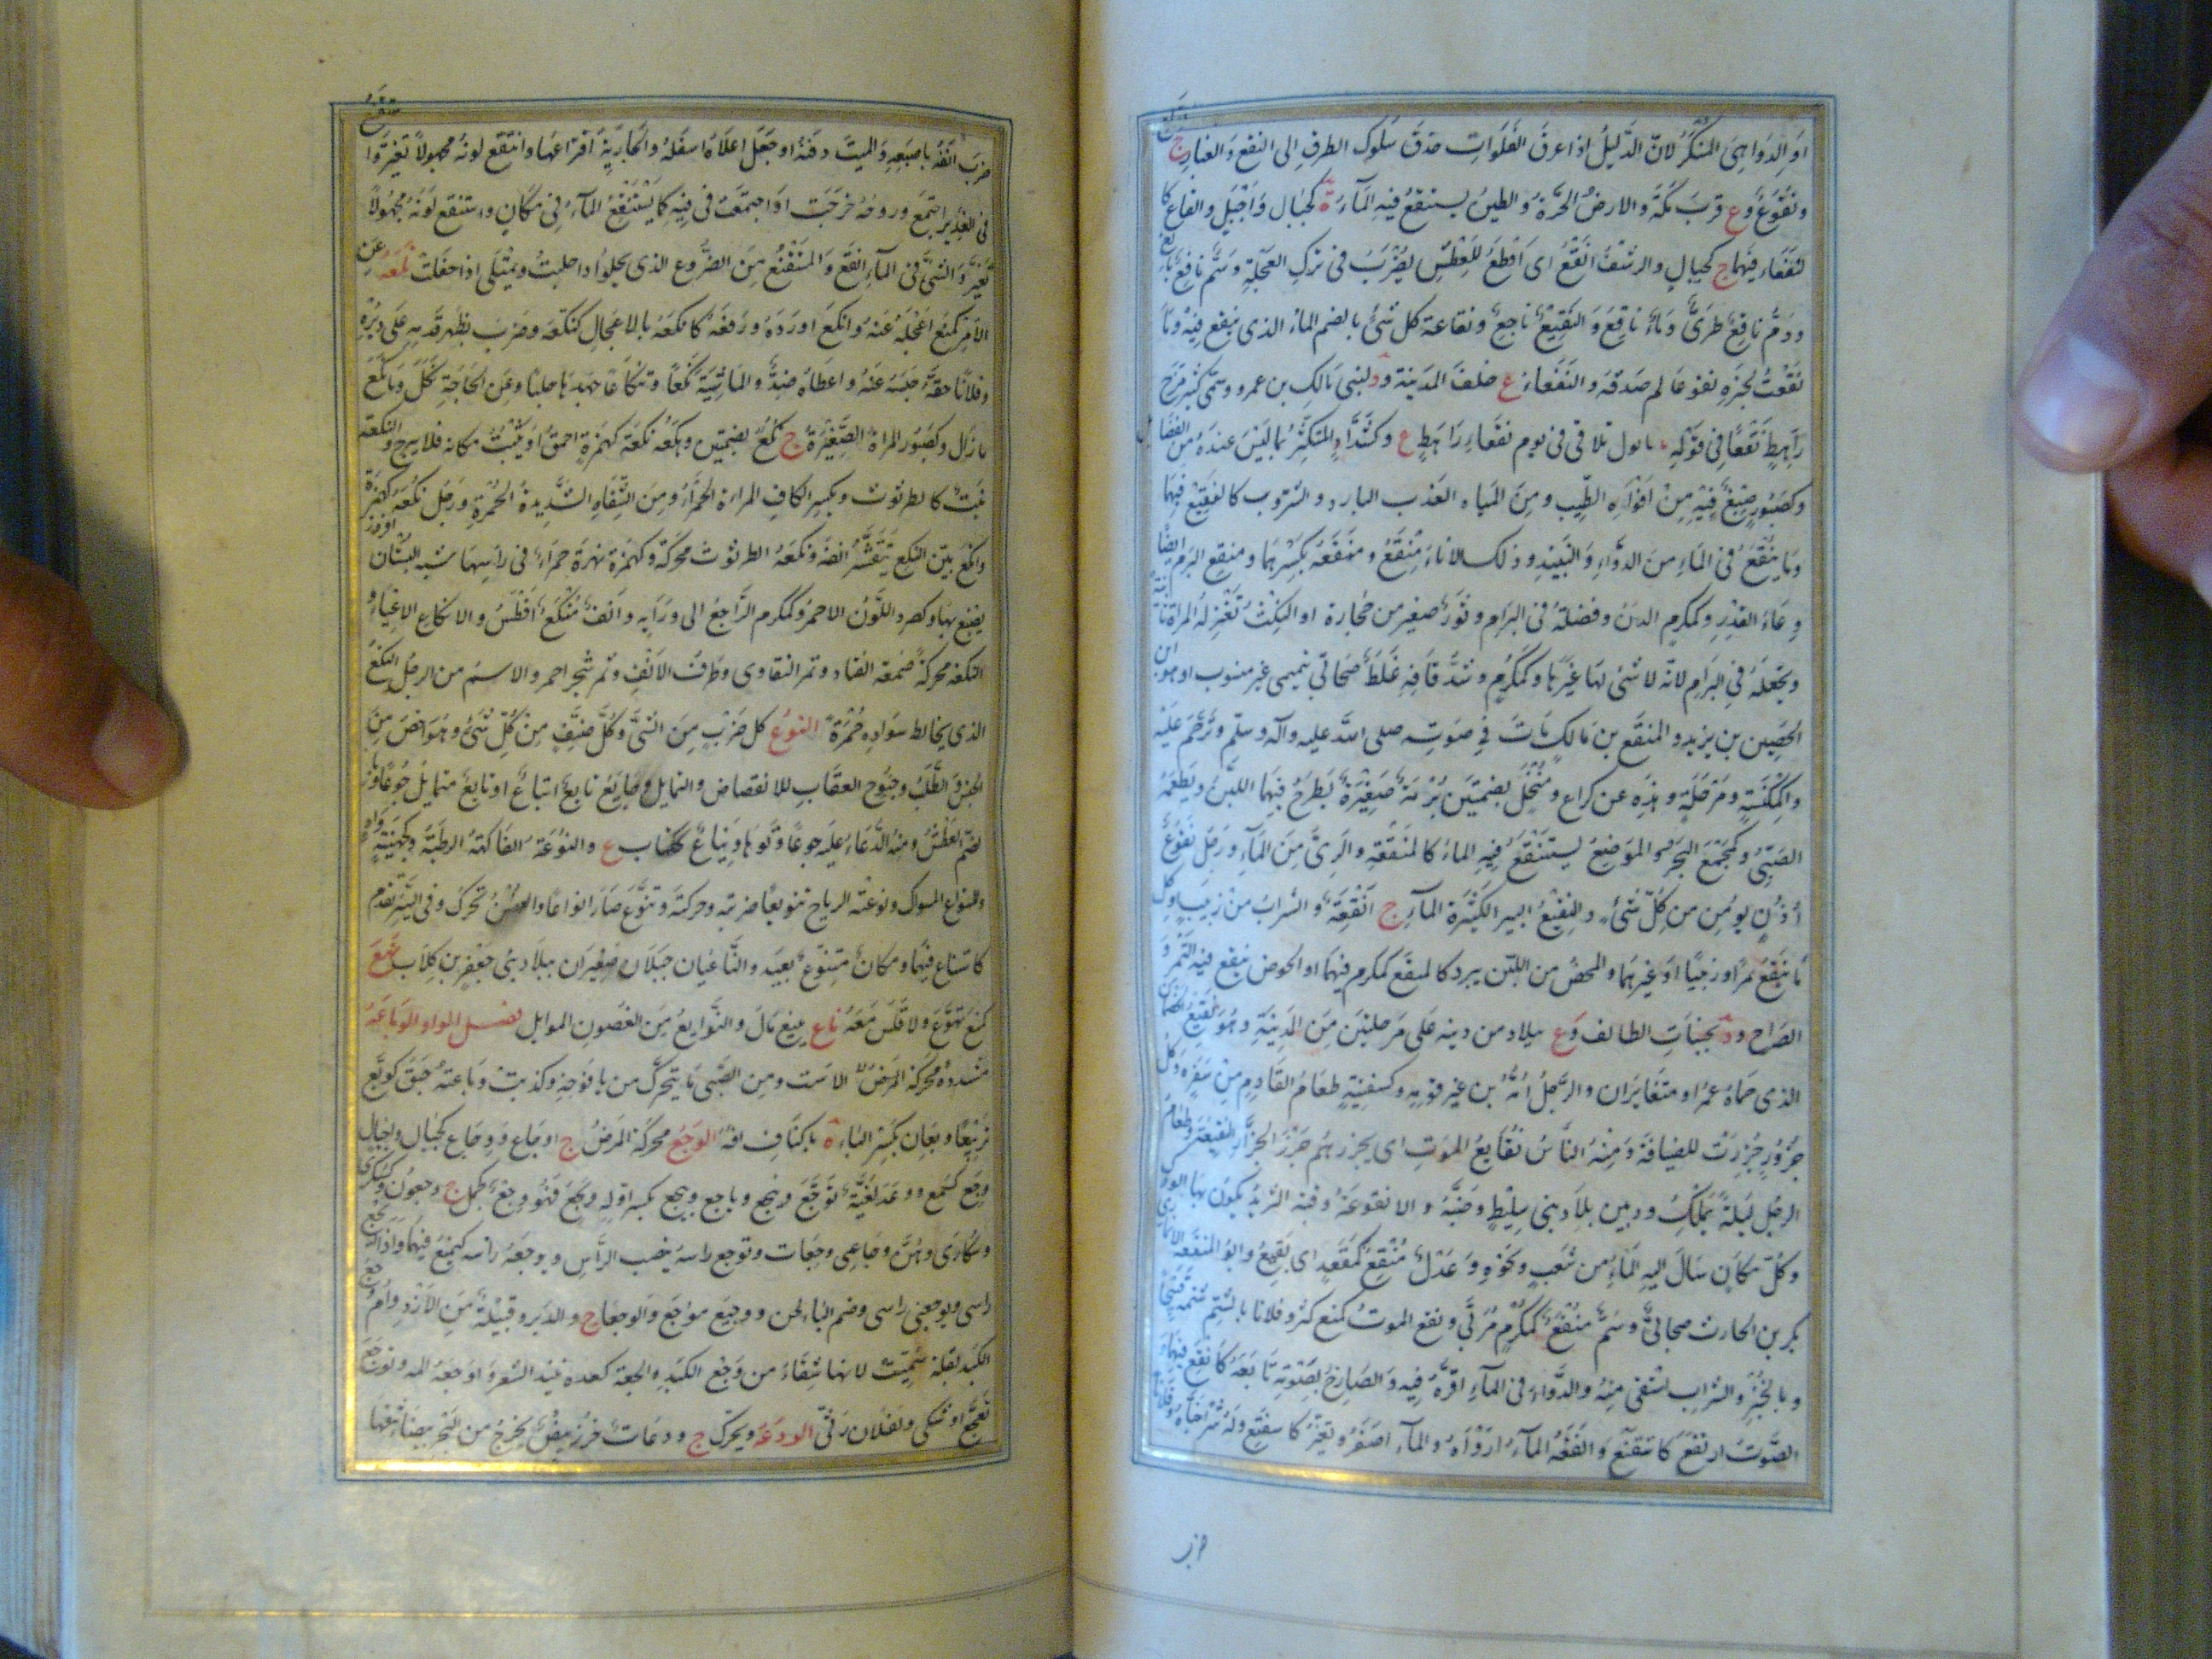 او الدواهی المنکر لان الدلیل اذا عرف الفلوات حذق سلوک الطرق الی النقع والغبار ج
ونقوع و ع قرب مکة والارض الحرة الطین یستنقع فیه الماء ة کجبال واجبل والقاع کا
لنقعاء فیهما ج کجبال والرشف انقع ای اقطع للعطش یضرب فی ترک العجلة وسم ناقع بالغ
ودم ناقع طری وماء ناقع والنقیع ناجع ونقاعة کل شئ بالضم الماء الذی ینقع فیه وما
نقعت بخبره نقوعا لم صدقه والنقعاء ع خلف المدینة و ة لبنی مالک بن عمرو وسمی کثیر مرج
راهط نقعا فی قوله ابول تلاقی فی یوم نقعاء راهط ع وکشداد المتکثر بما لیس عنده من الفضا
وکصبور صبغ فیه من افواه الطیب ومن المیاه العذب البارد والشروب کالنقیع فیهما
وما ینقع فی الماء من الدواء والنبیذ وذلک الاناء منقع ومنقعة بکسرهما ومنقع البرم ایضا
وعاء القدر وکمکرم الدن وفضلة فی البرام وتور صغیر من حجارة او النکث تغزله المراة ثانیة
وتجعله فی البرام لانه لا شئ لها غیرها وکمکرم وشد قافه غلط صحابی تمیمی غیر منسوب او هو ابن
الحصین بن یزید والمنقع بن مالک مات فی حیوته صلی الله علیه وآله وسلم وترحم علیه
وکمکنسة ومرحلة وهذه عن کراع ومنخل بضمتین برمة صغیرة یطرح فیها اللبن ویطعمه
الصبی وکمجمع البحر والموضع یستنقع فیه الماء کالمنقعة والری من الماء ورجل نقوع
اذن یومن من کل شئ والنقیع البیر الکثیرة الماء ج انقعة والشراب من زبیب او کل
ما ینقع تمرا او زبیبا او غیرهما والمحض من اللبن یبرد کالمنقع کمکرم فیهما او الحوض ینقع فیه التمر و
الصراخ و ع بجنبات الطائف و ع ببلاد من دینه علی مرحلتین من المدینة وهو نقیع الخضمات
الذی حماه عمر او متغایران والرجل امه من غیر قومه وکسفینة طعام القادم من سفره وکل
جزور جزرت للضیافة ومنه الناس نقایع الموت ای یجزرهم جزر الجزار النقیعة وطعام
الرجل لیلة یملک و ع بین بلاد بنی سلیط وضبة والانقوعة وقبة الثرید یکون بها الودک
وکل مکان سال الیه الماء من شعب ونحوه وعدل منقع کمقعد ای یقنع وابو المنقعة الانماری
بکر بن الحارث صحابی وسم منقع کمکرم مربی ونقع الموت کمنع کثر وفلانا بالشتم شتمه قبیحا
وبالخبر والشراب اشتفی منه والدواء فی الماء اقره فیه والصارخ بصوته تابعه کانقع فیهما و
الصوت ارتفع کاستنقع وانقعه الماء ارواه والماء اصفر وتغیر کاستنقع وله شرا خباه وفلانا
ضرب
ضرب انفه باصبعه والمیت دفنه او جعل اعلاه اسفله والجاریة افترعها وانتقع لونه مجهولا تغیر وا
فی الغدیر اجتمع وروحه خرجت او اجتمعت فی فیه کما یستنقع الماء فی مکان واستنقع لونه مجهولا
تغیر والشئ فی الماء انقع والمستنقع من الضروع الذی یخلو اذا حلبت ویمتلئ اذا حفلت نکعه عن
الامر کمنع اعجله عنه وانکع او رده ورفعه کانکعه بالاعجال کنکعه وضرب بظهر قدمه علی دبره
وفلانا حقه حبسه عنه واعطاه ضد والماشیة نکعا وتنکاعا جهدها حلبا وعن الحاجة نکل وما نکع
ما زال وکصبور المراة الصغیرة ج نکع بضمتین وهکعة نکعة کهمزة احمق او یثبت مکانه فلا یبرح والنکعة
نبت کالطرثوث وبکسر الکاف المراة الحمراء ومن الشفاه الشدیدة الحمرة ورجل نکعة کهمزة
وانکع بین النکع یتقشر انفه ونکعة الطرثوث محرکة وکهمزة زهرة حمراء فی راسها شبه البستان افروز
یصبغ بها وکصرد اللون الاحمر وکمکرم الراجع الی ورائه وانف منکع افطس والانکاع الاعیاء و
النکعة محرکة صمغة القتاد وثمر النقاوی وطرف الانف وثمر شجر احمر والاسم من الرجل النکع
الذی یخالط سواده حمرة النوع کل ضرب من الشئ وکل صنف من کل شئ وهو اخص من
الجنس والطلب وجنوح العقاب للانقضاض والتمایل وجایع نایع اتباع او نایع متمایل جوعا وبا
لضم العطش ومنه الدعاء علیه جوعا ونوعا ونیاع ککتاب ع والنوعة الفاکهة الرطبة وکجهینة واد
والمنواع المنوال ونوعته الریاح تنویعا ضربته وحرکته وتنوع صار انواعا والغصن تحرک وفی السیر تقدم
کاستناع فیهما ومکان متنوع بعید والنائعان جبلان صغیران ببلاد بنی جعفر بن کلاب نهع
کمنع تهوع ولا قلس معه ناع ینیع مال والنوایع من الغصون الموایل فصل الواو الوباعة
مشددة محرکة المرض الاست ومن الصبی ما یتحرک من یافوخه وکذبت وباعته حبق کوبع
توبیعا ووبعان بکسر الباء ة باکناف آرة الوجع محرکة المرض ج اوجاع ووجاع کجبال واجبال
وجع کسمع ووعد لغیة یوجع وییجع ویاجع وییجع بکسر اوله ویجع فهو وجع کخجل ج وجعون وکسکری
وسکاری وهن وجاعی وجعات وتوجع راسه بنصب الراس ویوجعه راسه کیمنع فیهما وانا ایجع
راسی ویوجعنی راسی وضم الیاء لحن ووجیع موجع والوجعاء ع والدبر وقبیلة من الازد وام وجع
الکبد بقلة سمیت لانها شفاء من وجع الکبد والجعة کعدة نبیذ الشعیر واوجعه المه وتوجع
تفجع او تشکی ولفلان رثی الودعة ویحرک ج ودعات خرز بیض یخرج من البحر بیضاء شقها